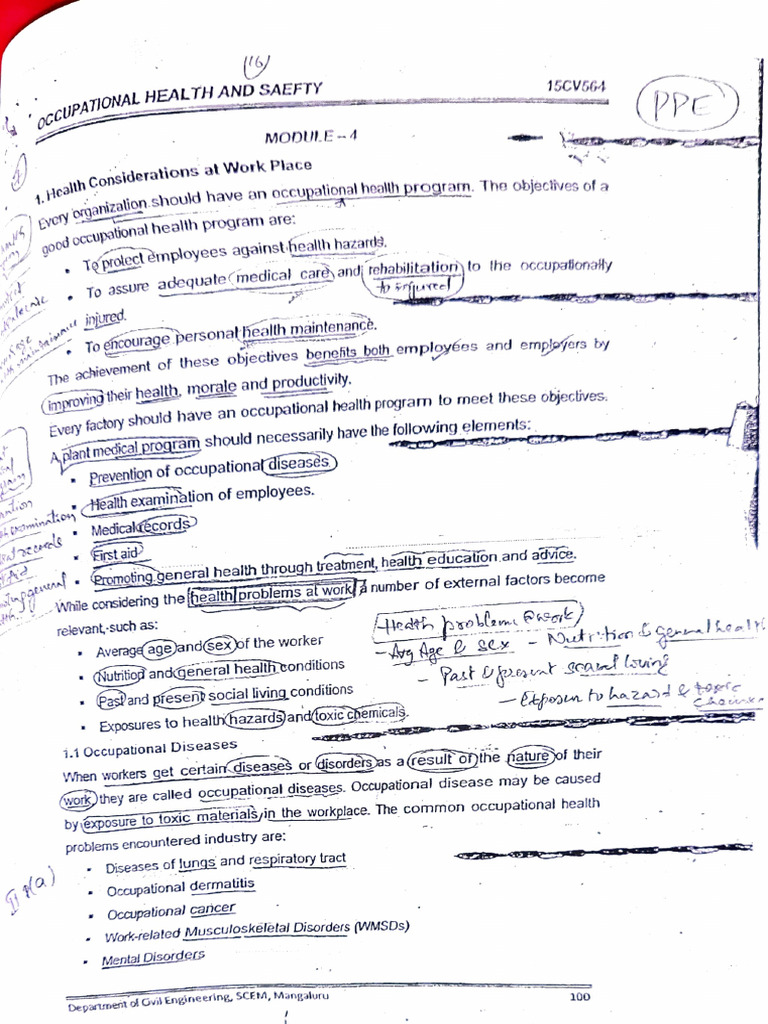 (16)
OCCUPATIONAL HEALTH AND SAEFTY 15CV564
PPE
MODULE – 4
1. Health Considerations at Work Place
Every organization should have an occupational health program. The objectives of a
good occupational health program are:
• To protect employees against health hazards.
• To assure adequate medical care and rehabilitation to the occupationally
to injured
injured.
• To encourage personal health maintenance.
The achievement of these objectives benefits both employees and employers by
improving their health, morale and productivity.
Every factory should have an occupational health program to meet these objectives.
A plant medical program should necessarily have the following elements:
• Prevention of occupational diseases
• Health examination of employees.
• Medical records
• First aid
• Promoting general health through treatment, health education and advice.
While considering the health problems at work, a number of external factors become
relevant, such as:
Health problems @ work
• Average age and sex of the worker
- Avg Age & sex - Nutrition & general health
• Nutrition and general health conditions
- Past & present social living
• Past and present social living conditions
- Exposer to hazard & toxic
• Exposures to health hazards and toxic chemicals.
1.1 Occupational Diseases
When workers get certain diseases or disorders as a result of the nature of their
work they are called occupational diseases. Occupational disease may be caused
by exposure to toxic materials in the workplace. The common occupational health
problems encountered industry are:
• Diseases of lungs and respiratory tract
• Occupational dermatitis
• Occupational cancer
• Work-related Musculoskeletal Disorders (WMSDs)
• Mental Disorders
Department of Civil Engineering, SCEM, Mangaluru 100